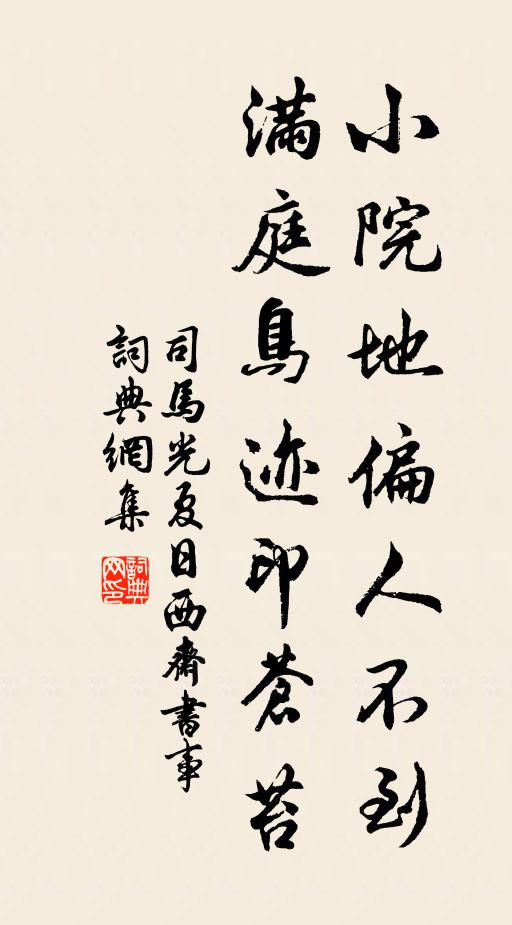 小院地偏人不到
滿庭鳥迹印蒼苔
司馬光夏日西齋書事
詞典網集
詞典網印